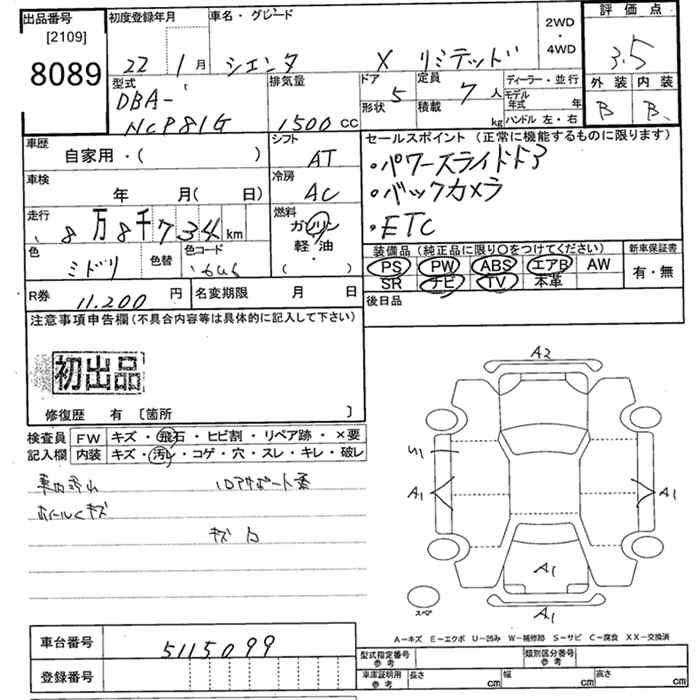 出品番号
[2109]
8089
初度登録年月
22 1月
車名・グレード
シエンタ X リミテッド
2WD
・
4WD
評価点
3.5
外装 内装
B B
型式
DBA-
NCP81G
排気量
1500 CC
ドア 5
形状
定員 7 人
積載 kg
ディーラー・並行
モデル年式 年
ハンドル 左・右
車歴
自家用・( )
シフト
AT
車検
年 月( 日)
冷房
AC
走行
8万8千734km
燃料
ガソリン
軽油
( )
色
ミドリ
色替
色コード
R券 11.200 円
名変期限 月 日
セールスポイント(正常に機能するものに限ります)
・パワースライドドア
・バックカメラ
・ETC
装備品(純正品に限り〇をつけてください)
PS PW ABS エアB AW
SR ナビ TV 本革
新車保証書
有・無
後日品
注意事項申告欄(不具合内容等は具体的に記入して下さい)
初出品
修復歴 有〔箇所 〕
検査員 FW キズ・飛石・ヒビ割・リペア跡・×要
記入欄 内装 キズ・汚レ・コゲ・穴・スレ・キレ・破レ
キズ
A2
U1
A1
A1
A1
A1
スペア
A-キズ E-エクボ U-凹み W-補修跡 S-サビ C-腐食 XX-交換済
車台番号 5115099
登録番号
型式指定番号 参考
類別区分番号 参考
車庫証明用 参考 長さ cm 幅 cm 高さ cm